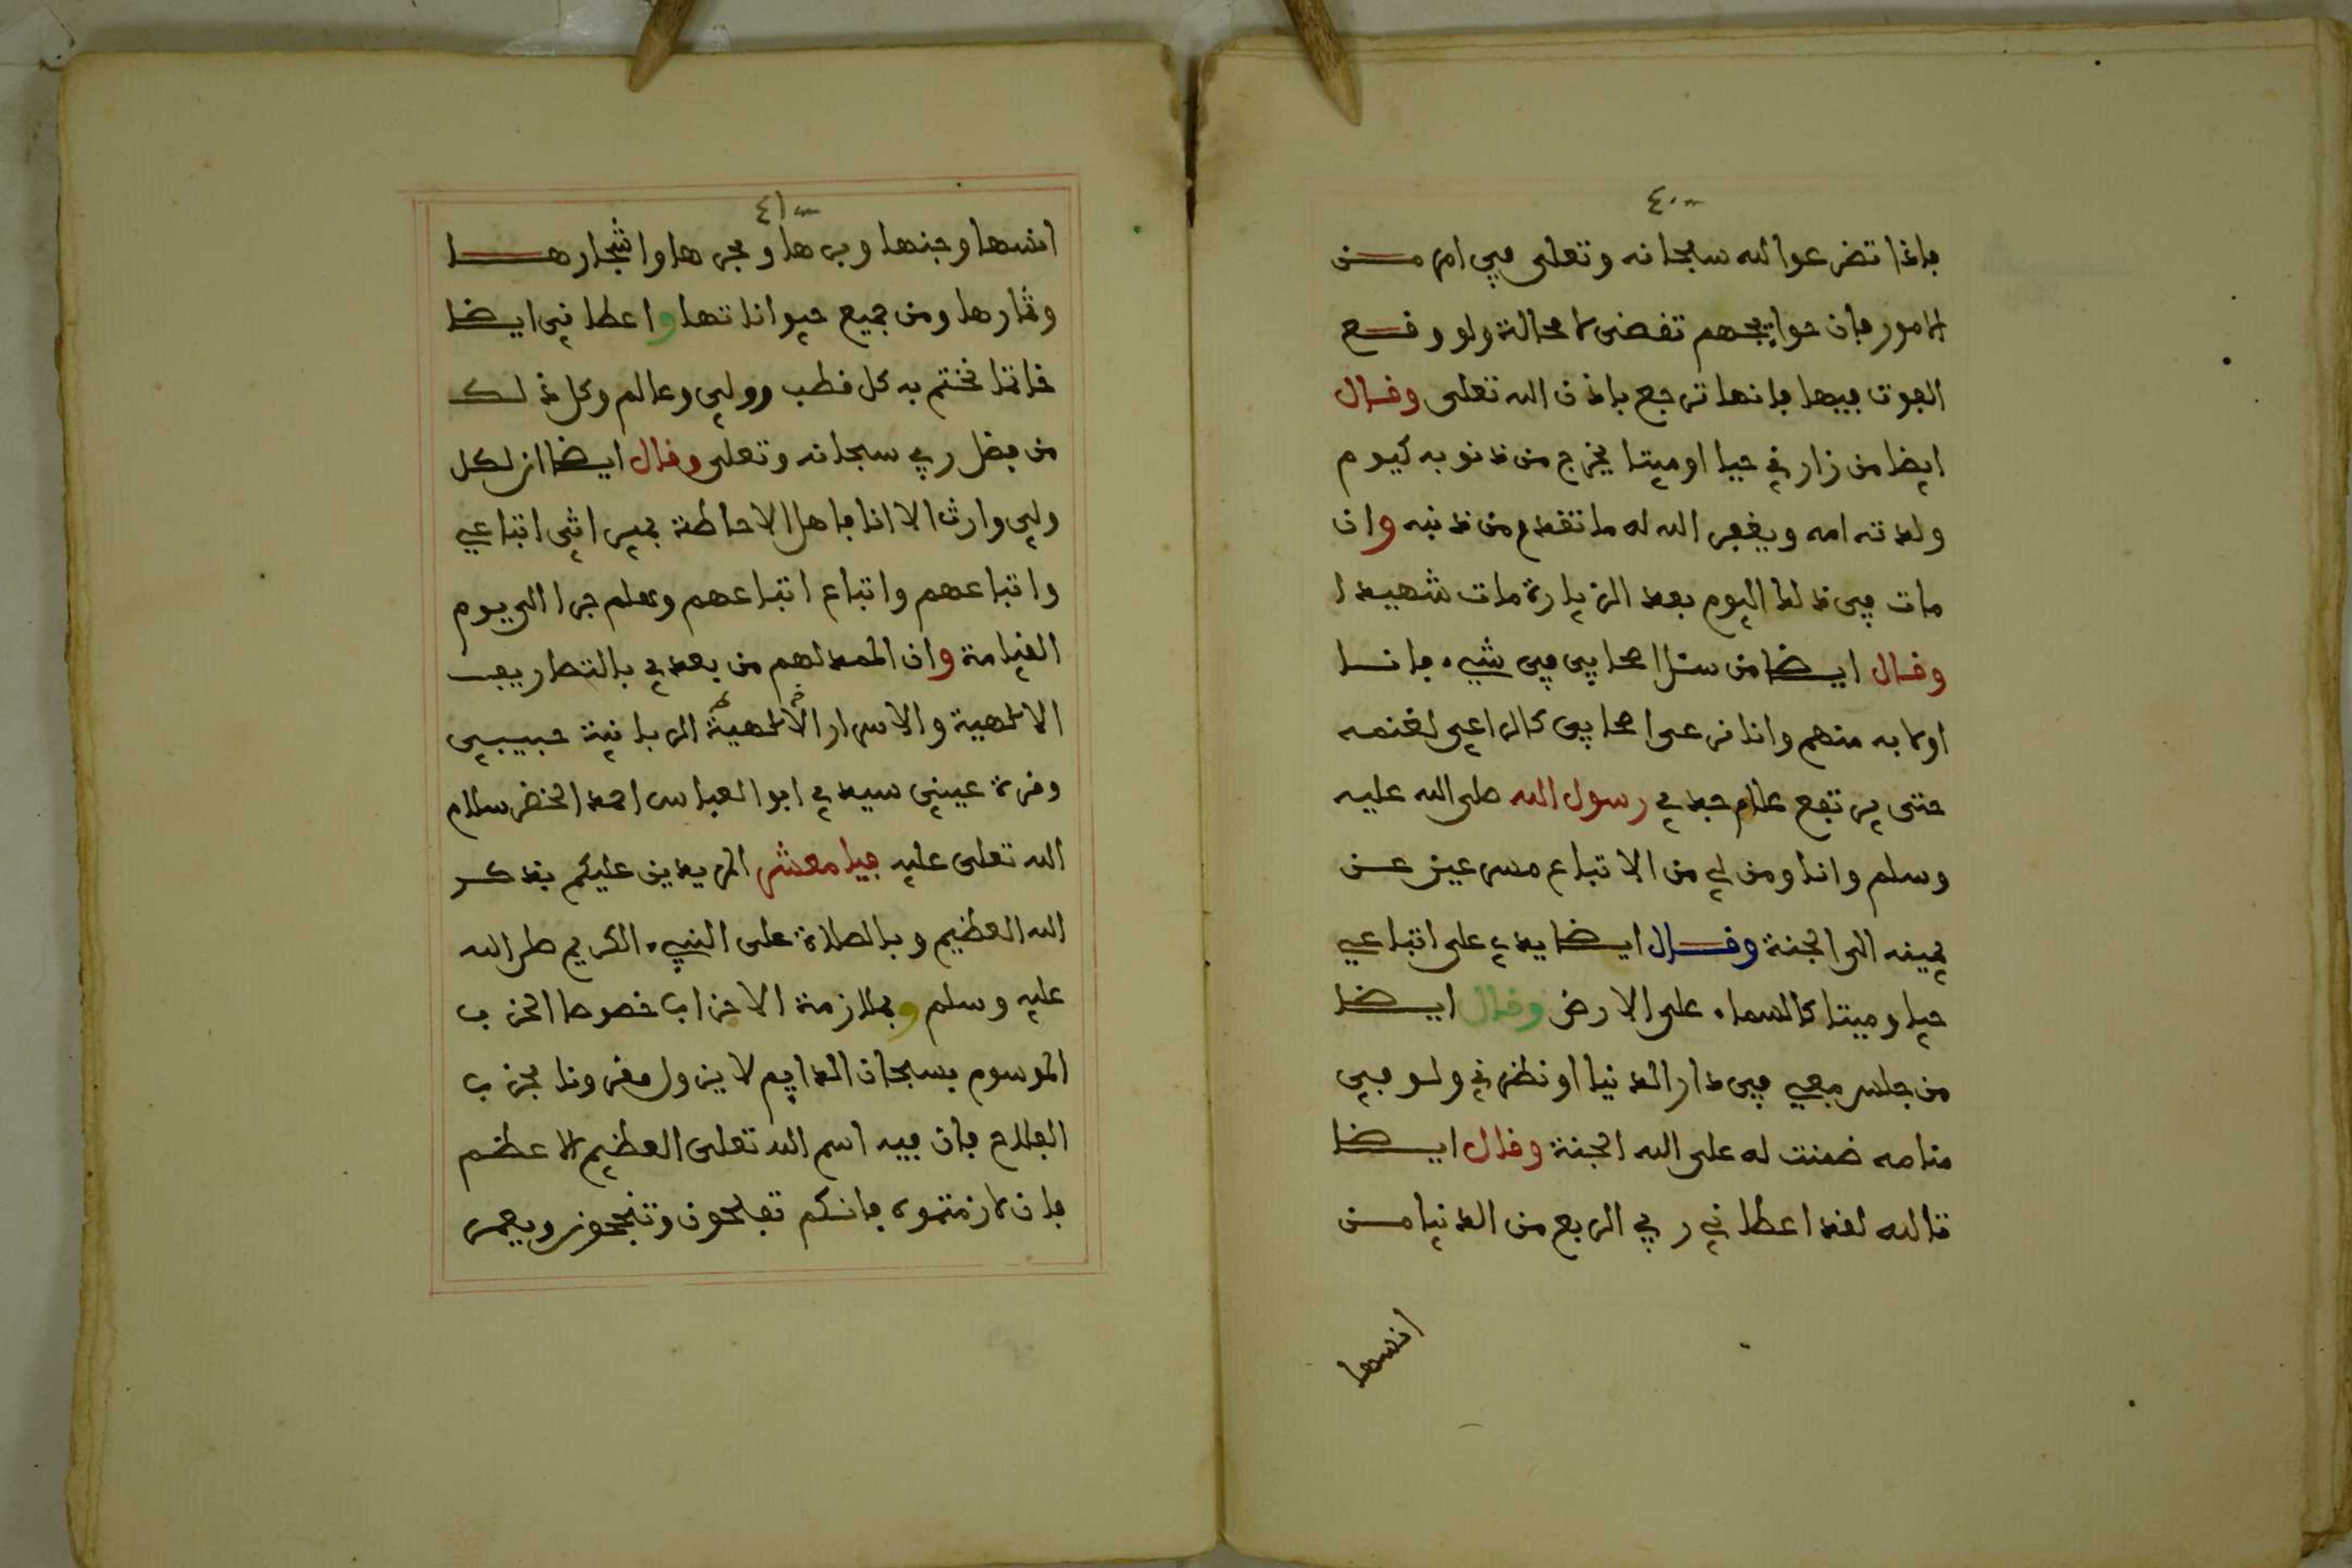 ٤٠
فاذا تضرعوا لله سبحانه وتعلى في امر من
الامور فان حوايجهم تقضى لا محالة ولو وقع
الفوت فيها فانها ترجع باذن الله تعلى وقال
ايضا من زارني حيا او ميتا يخرج من ذنوبه كيوم
ولدته امه ويغفر الله له ما تقدم من ذنبه وان
مات في ذلك اليوم بعد الزيارة مات شهيدا
وقال ايضا من سئل اصحابي في شيء فانا
اولى به منهم وانا نرعى اصحابي كالراعي لغنمه
حتى يرتفع علام جدي رسول الله صلى الله عليه
وسلم وانا ومن لي من الاتباع مسرعين عن
يمينه الى الجنة وقال ايضا يدي على اتباعي
حيا وميتا كالسماء على الارض وقال ايضا
من جلس معي في دار الدنيا او نظرني ولو في
منامه ضمنت له على الله الجنة وقال ايضا
تالله لقد اعطاني ربي الربع من الدنيا من
انسها
٤١
انسها وجنها وبرها وبحرها واشجارها
وثمارها ومن جميع حيواناتها واعطاني ايضا
خاتما نختم به كل قطب وولي وعالم وكل ذلك
من فضل ربي سبحانه وتعلى وقال ايضا ان لكل
ولي وارث الا انا فاهل الاحاطة بميراثي اتباعي
واتباعهم واتباع اتباعهم وهلم جرا الى يوم
القيامة وان الممد لهم من بعدي بالتصاريف
الالهية والاسرار الالهية الربانية حبيبي
وقرة عيني سيدي ابو العباس احمد الخضر سلام
الله تعلى عليه فيا معشر المريدين عليكم بذكر
الله العظيم وبالصلاة على النبيء الكريم صلى الله
عليه وسلم وبملازمة الاحزاب خصوصا الحزب
الموسوم بسبحان الدايم لا يزول مقرونا بحزب
الفلاح فان فيه اسم الله تعلى العظيم الاعظم
فان لازمتموه فانكم تفلحون وتنجحون ويعمر